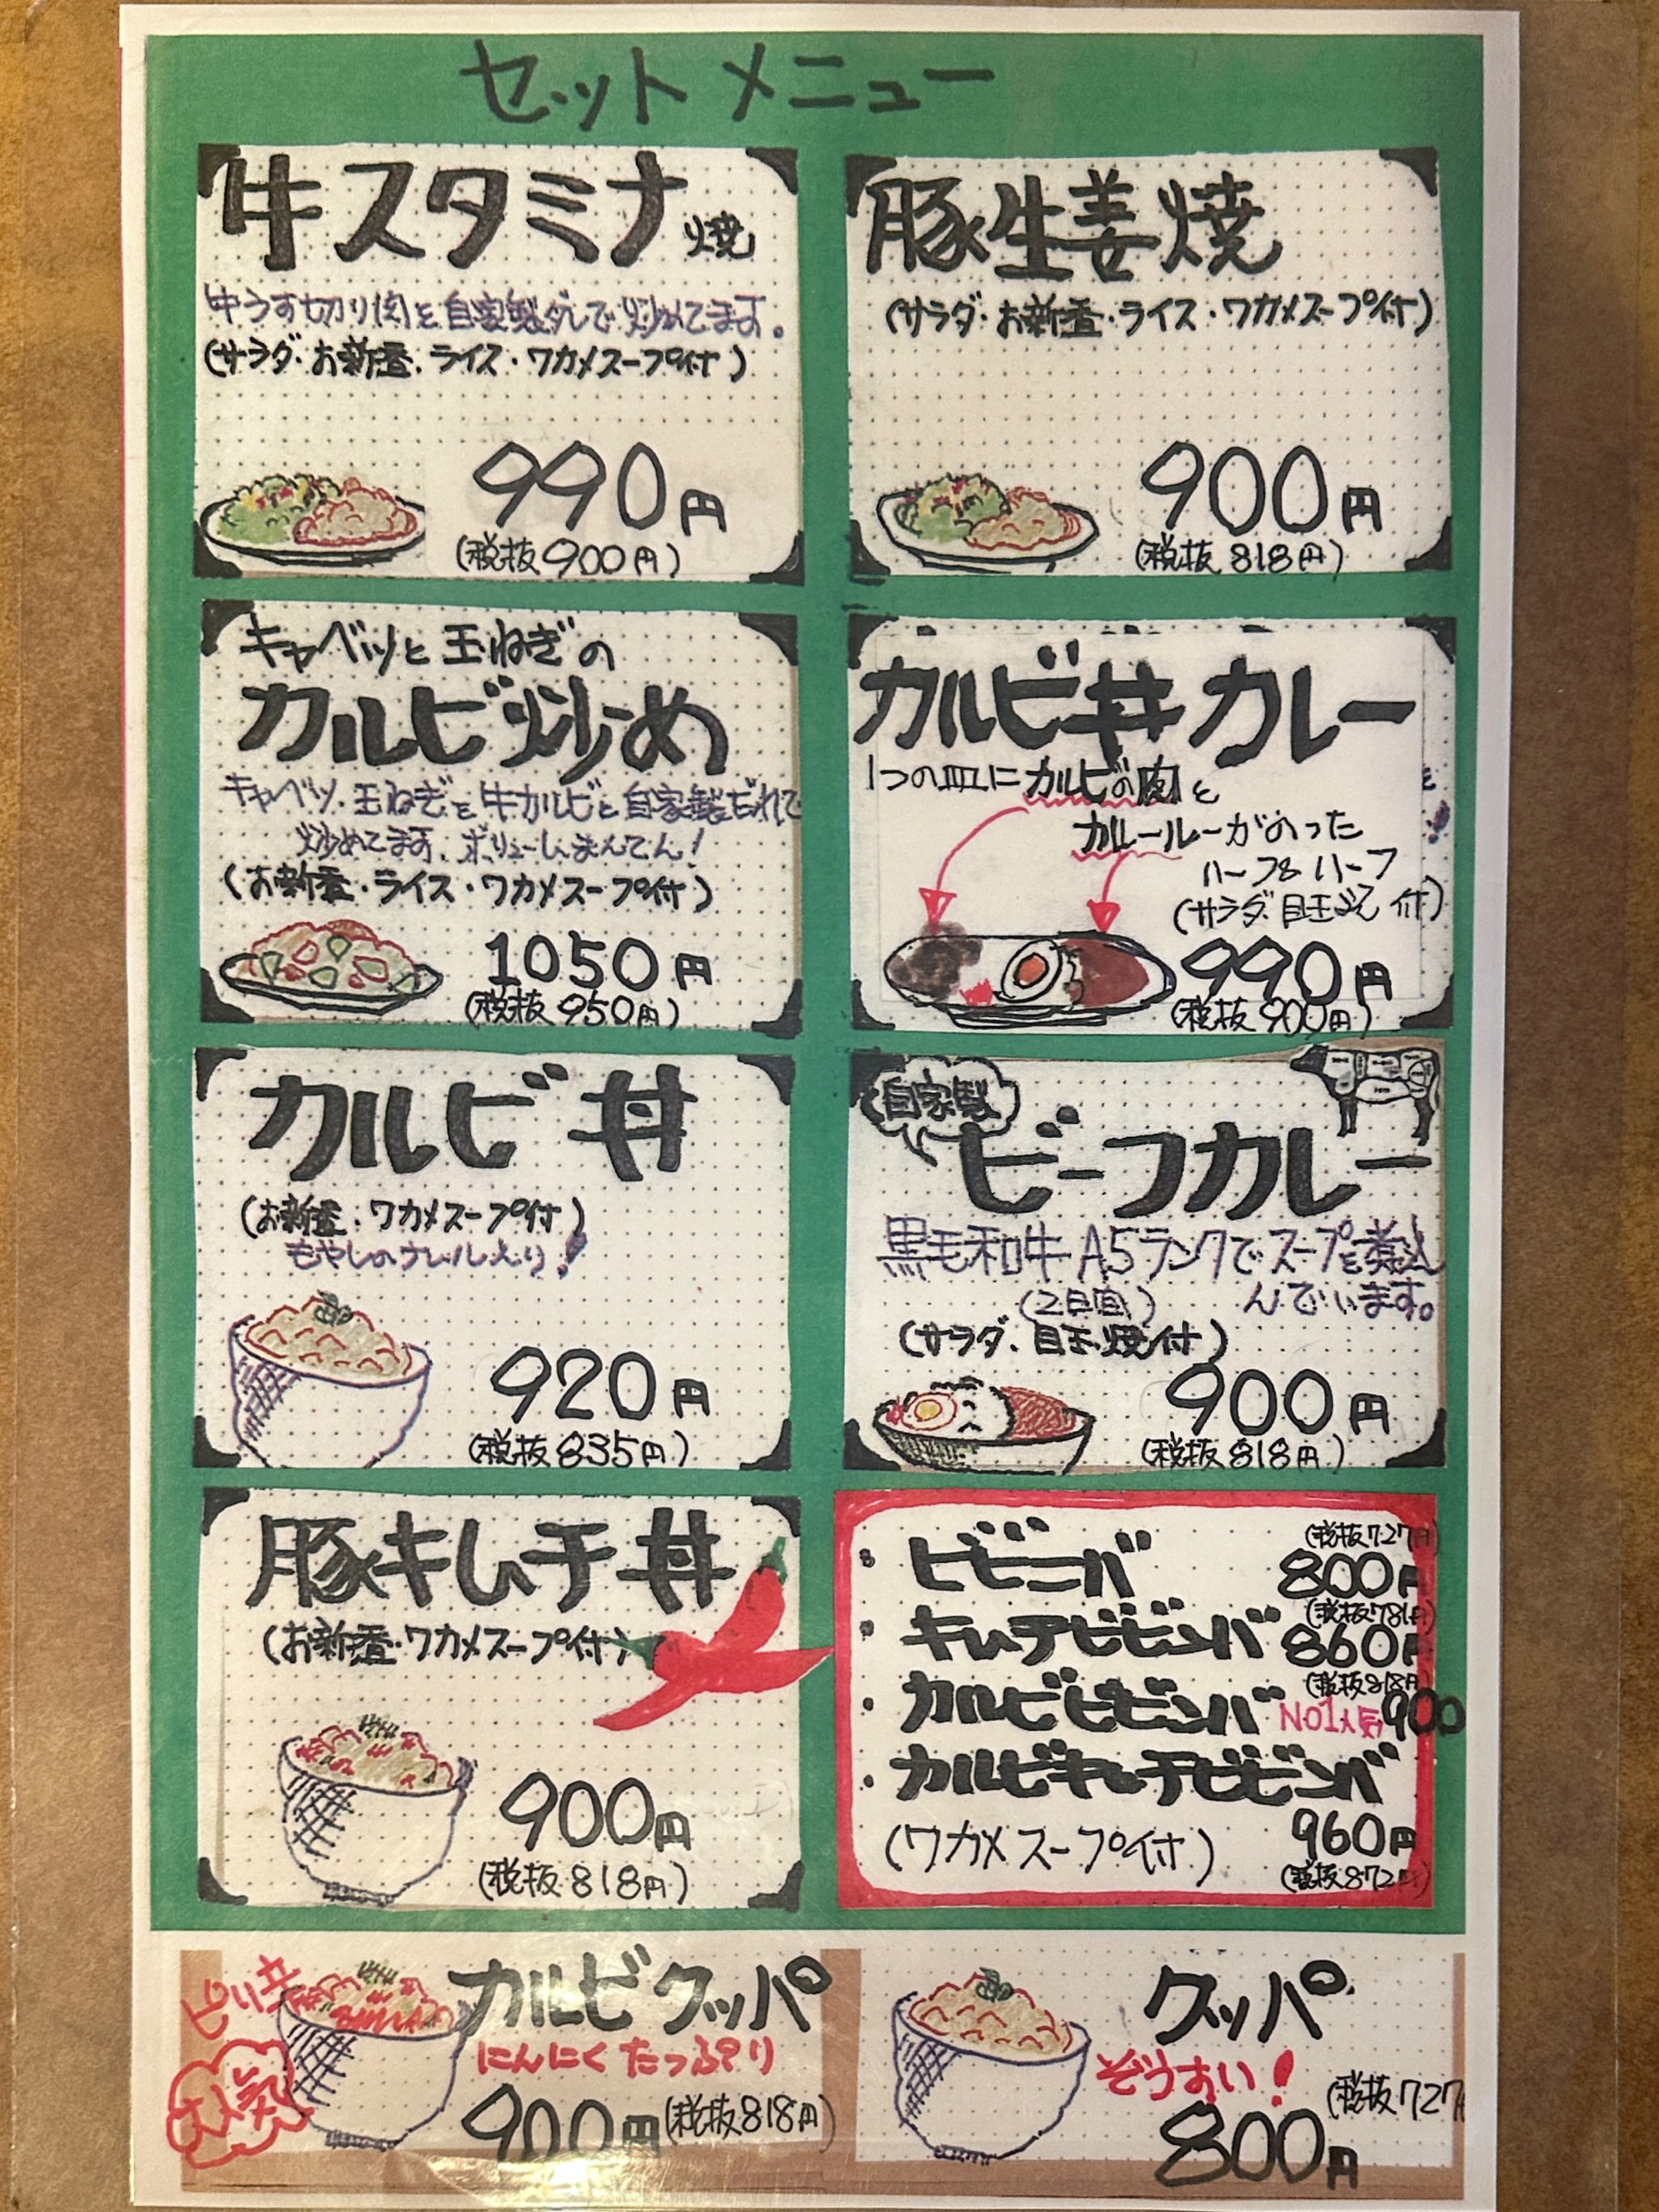 セットメニュー
牛スタミナ焼
牛うす切り肉を自家製ダレで炒めてます。
(サラダ・お新香・ライス・ワカメスープ付)
990円
(税抜900円)
豚生姜焼
(サラダ・お新香・ライス・ワカメスープ付)
900円
(税抜818円)
キャベツと玉ねぎの
カルビ炒め
キャベツ・玉ねぎを牛カルビと自家製だれで
炒めてます。ボリュームまんてん!
(お新香・ライス・ワカメスープ付)
1050円
(税抜950円)
カルビ丼カレー
1つの皿にカルビの肉と
カレールーがのった
ハーフ&ハーフ
(サラダ・目玉焼 付)
990円
(税抜900円)
カルビ丼
(お新香・ワカメスープ付)
もやしのナムル入り!
920円
(税抜835円)
自家製
ビーフカレー
黒毛和牛A5ランクでスープを煮込
んでいます。
(2日間)
(サラダ・目玉焼付)
900円
(税抜818円)
豚キムチ丼
(お新香・ワカメスープ付)
900円
(税抜818円)
(税抜727円)
・ビビンバ 800円
(税抜781円)
・キムチビビンバ 860円
(税抜818円)
・カルビビビンバ No1人気 900
・カルビキムチビビンバ
(ワカメスープ付) 960円
(税抜872円)
ピリ辛
大人気
カルビクッパ
にんにくたっぷり
900円(税抜818円)
クッパ
ぞうすい!
(税抜727
800円